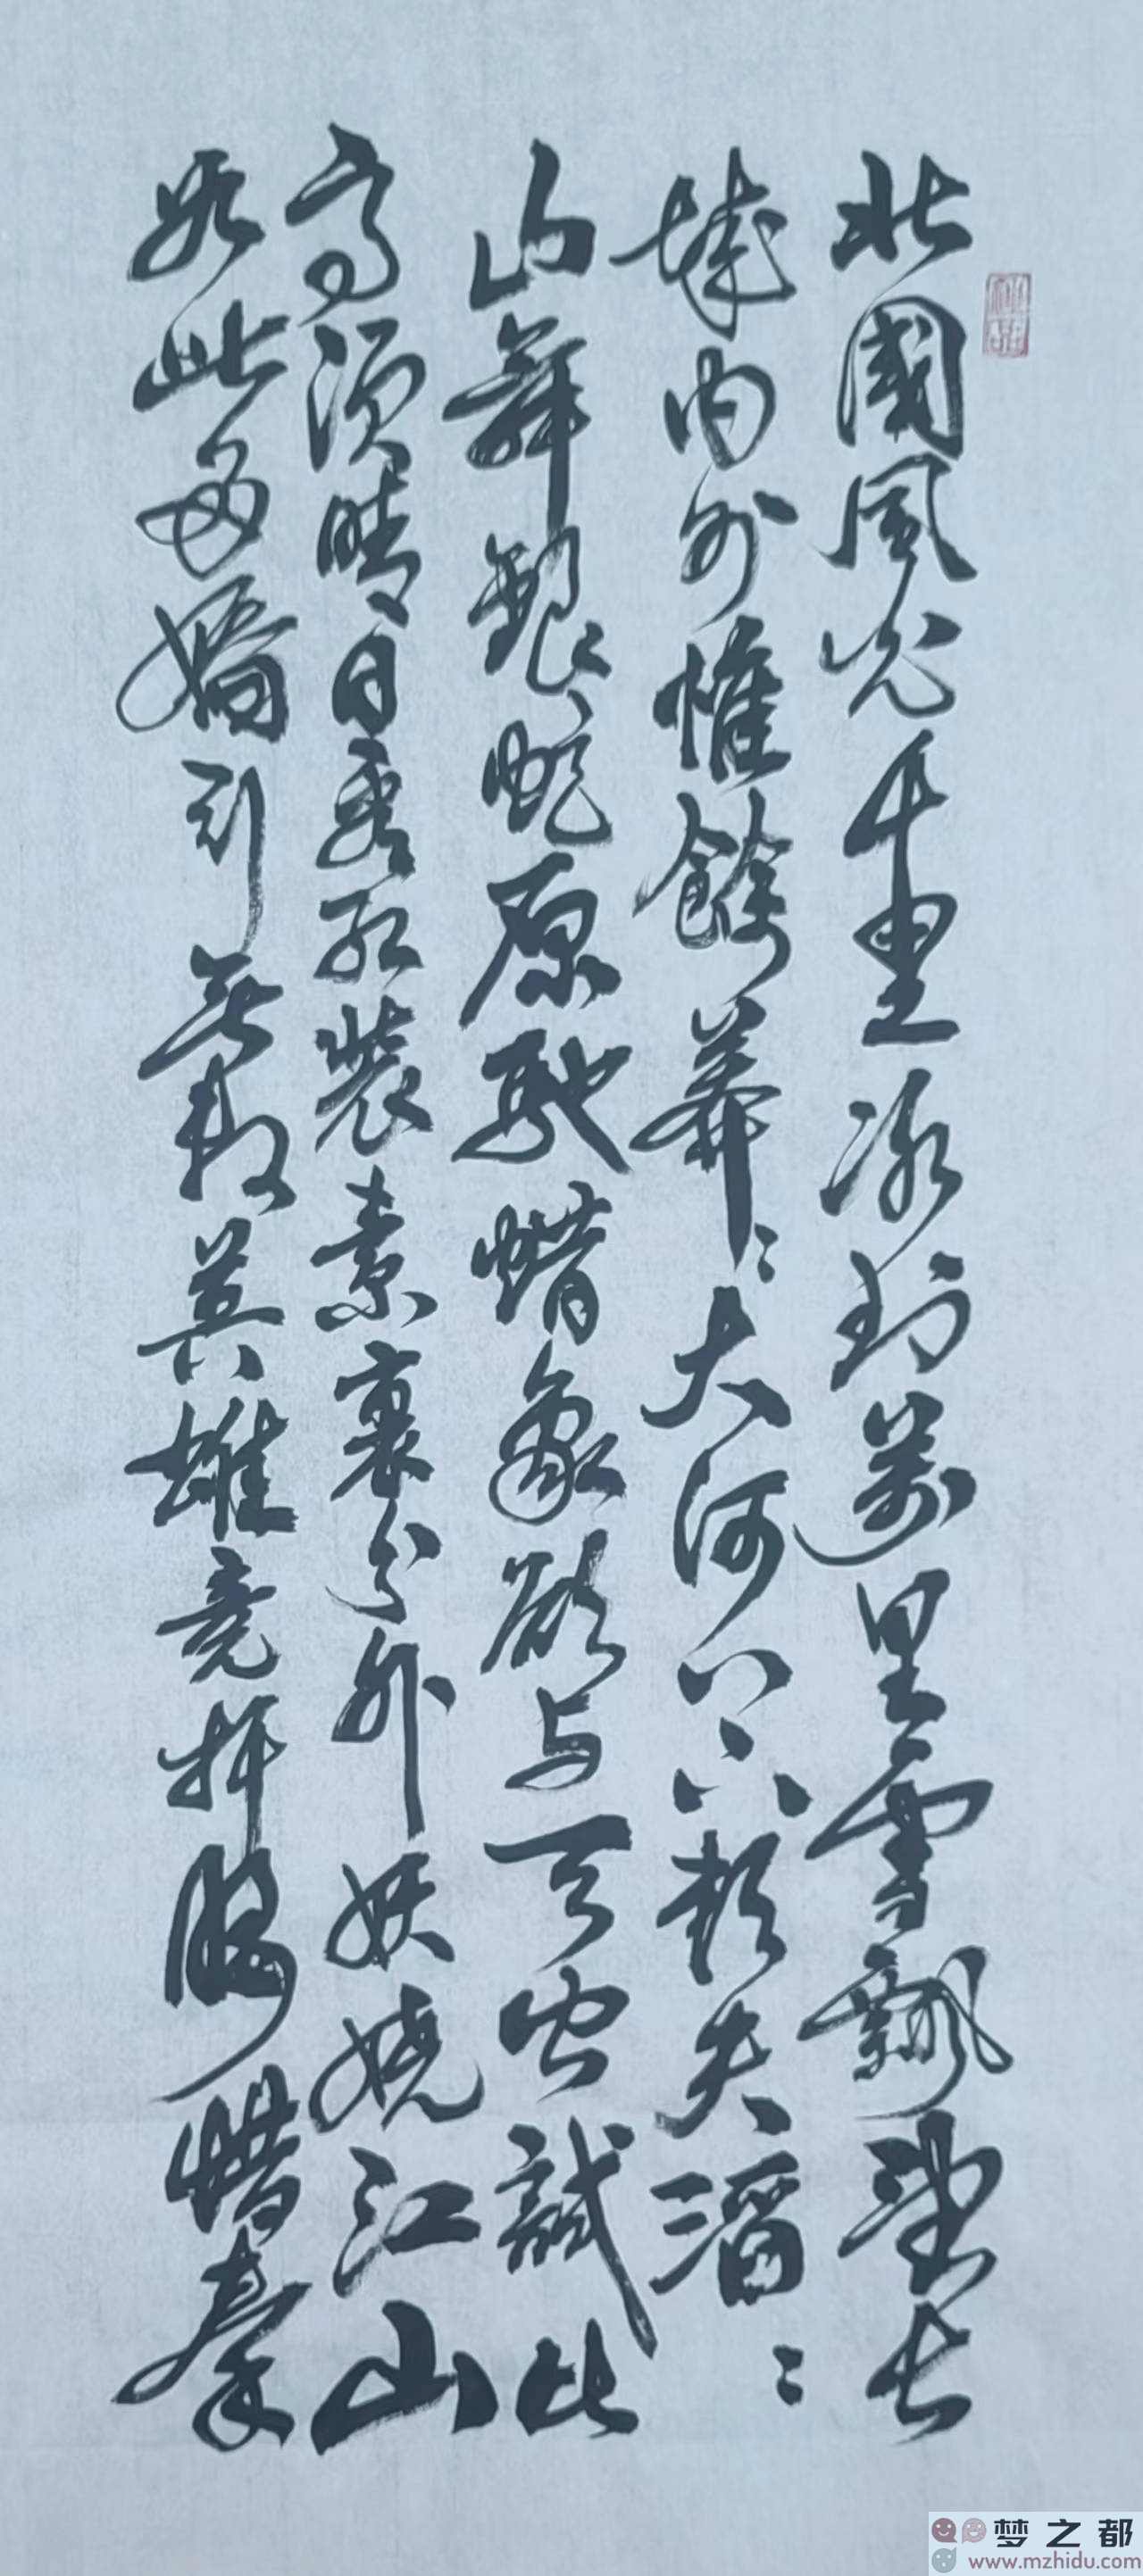 北國風光千里冰封萬里雪飄望長
城内外惟餘莽〻大河上下頓失滔〻
山舞銀蛇原馳蜡象欲与天公試比
高須晴日看红裝素裹分外妖嬈江山
如此多嬌引無数英雄竞折腰惜秦
梦之都
www.mzhidu.com